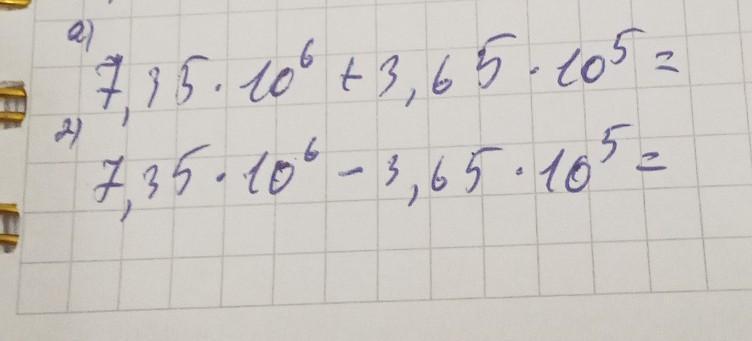 a)
7,35 · 10⁶ + 3,65 · 10⁵ =
2)
7,35 · 10⁶ − 3,65 · 10⁵ =